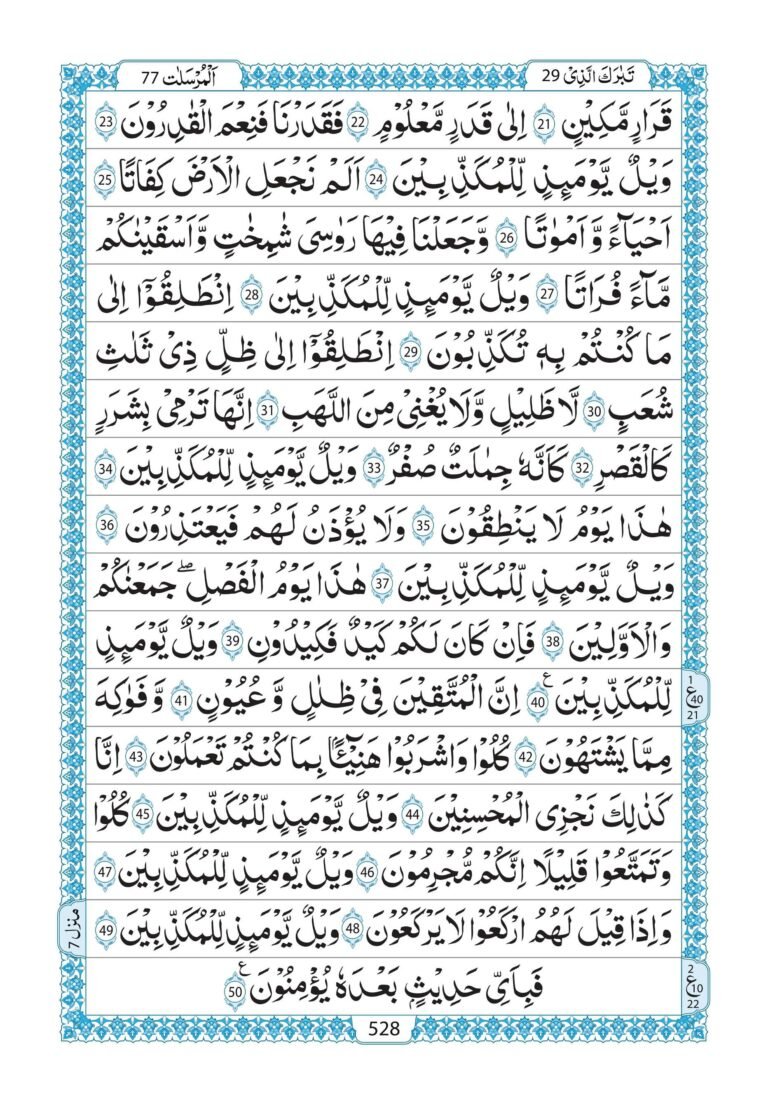 تَبٰرَكَ الَّذِیْ 29
اَلْمُرْسَلٰت 77
قَرَارٍ مَّكِیْنٍ 21 اِلٰی قَدَرٍ مَّعْلُوْمٍ 22 فَقَدَرْنَا فَنِعْمَ الْقٰدِرُوْنَ 23
وَیْلٌ یَّوْمَىِٕذٍ لِّلْمُكَذِّبِیْنَ 24 اَلَمْ نَجْعَلِ الْاَرْضَ كِفَاتًا 25
اَحْیَآءً وَّ اَمْوٰتًا 26 وَّجَعَلْنَا فِیْهَا رَوٰسِیَ شٰمِخٰتٍ وَّاَسْقَیْنٰكُمْ
مَّآءً فُرَاتًا 27 وَیْلٌ یَّوْمَىِٕذٍ لِّلْمُكَذِّبِیْنَ 28 اِنْطَلِقُوْۤا اِلٰی
مَا كُنْتُمْ بِهٖ تُكَذِّبُوْنَ 29 اِنْطَلِقُوْۤا اِلٰی ظِلٍّ ذِیْ ثَلٰثِ
شُعَبٍ 30 لَّا ظَلِیْلٍ وَّلَا یُغْنِیْ مِنَ اللَّهَبِ 31 اِنَّهَا تَرْمِیْ بِشَرَرٍ
كَالْقَصْرِ 32 كَاَنَّهٗ جِمٰلَتٌ صُفْرٌ 33 وَیْلٌ یَّوْمَىِٕذٍ لِّلْمُكَذِّبِیْنَ 34
هٰذَا یَوْمُ لَا یَنْطِقُوْنَ 35 وَلَا یُؤْذَنُ لَهُمْ فَیَعْتَذِرُوْنَ 36
وَیْلٌ یَّوْمَىِٕذٍ لِّلْمُكَذِّبِیْنَ 37 هٰذَا یَوْمُ الْفَصْلِ ۖ جَمَعْنٰكُمْ
وَالْاَوَّلِیْنَ 38 فَاِنْ كَانَ لَكُمْ كَیْدٌ فَكِیْدُوْنِ 39 وَیْلٌ یَّوْمَىِٕذٍ
لِّلْمُكَذِّبِیْنَ 40 ع اِنَّ الْمُتَّقِیْنَ فِیْ ظِلٰلٍ وَّ عُیُوْنٍ 41 وَّ فَوٰكِهَ
1 ع 40 21
مِمَّا یَشْتَهُوْنَ 42 كُلُوْا وَاشْرَبُوْا هَنِیْٓـًٔۢا بِمَا كُنْتُمْ تَعْمَلُوْنَ 43 اِنَّا
كَذٰلِكَ نَجْزِی الْمُحْسِنِیْنَ 44 وَیْلٌ یَّوْمَىِٕذٍ لِّلْمُكَذِّبِیْنَ 45 كُلُوْا
وَتَمَتَّعُوْا قَلِیْلًا اِنَّكُمْ مُّجْرِمُوْنَ 46 وَیْلٌ یَّوْمَىِٕذٍ لِّلْمُكَذِّبِیْنَ 47
وَاِذَا قِیْلَ لَهُمُ ارْكَعُوْا لَا یَرْكَعُوْنَ 48 وَیْلٌ یَّوْمَىِٕذٍ لِّلْمُكَذِّبِیْنَ 49
منزل 7
فَبِاَیِّ حَدِیْثٍۭ بَعْدَهٗ یُؤْمِنُوْنَ 50 ع
2 ع 10 22
528